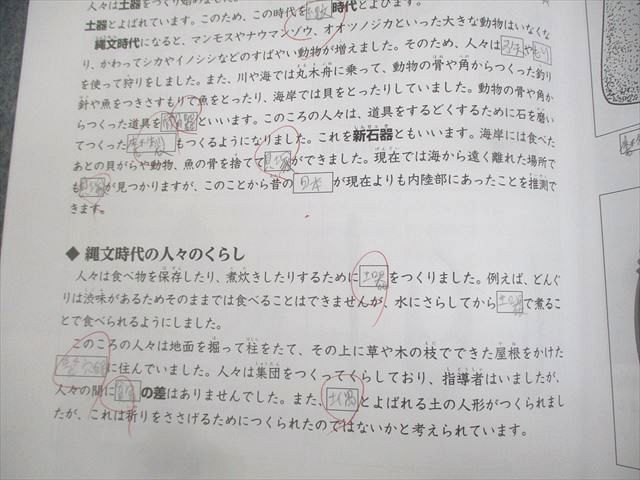 人々は土器をつくり始めました。
土器とよばれています。このため、この時代を 時代とよびます。
縄文時代になると、マンモスやナウマンゾウ、オオツノジカといった大きな動物はいなくな
り、かわってシカやイノシシなどのすばやい動物が増えました。そのため、人々は や
を使って狩りをしました。また、川や海では丸木舟に乗って、動物の骨や角からつくった釣り
針や魚をつきさすもりで魚をとったり、海岸では貝をとったりしていました。動物の骨や角か
らつくった道具を 骨角器 といいます。このころの人々は、道具をするどくするために石を磨い
てつくった もつくるようになりました。これを新石器ともいいます。海岸には食べた
あとの貝がらや動物、魚の骨を捨てて 貝塚 ができました。現在では海から遠く離れた場所で
も 貝塚 が見つかりますが、このことから昔の 日本 が現在よりも内陸部にあったことを推測で
きます。
◆ 縄文時代の人々のくらし
人々は食べ物を保存したり、煮炊きしたりするために 土器 をつくりました。例えば、どんぐ
りは渋味があるためそのままでは食べることはできませんが、水にさらしてから 土器 で煮るこ
とで食べられるようにしました。
このころの人々は地面を掘って柱をたて、その上に草や木の枝でできた屋根をかけた
に住んでいました。人々は集団をつくってくらしており、指導者はいましたが、
人々の間に の差はありませんでした。また、 土偶 とよばれる土の人形がつくられまし
たが、これは祈りをささげるためにつくられたのではないかと考えられています。